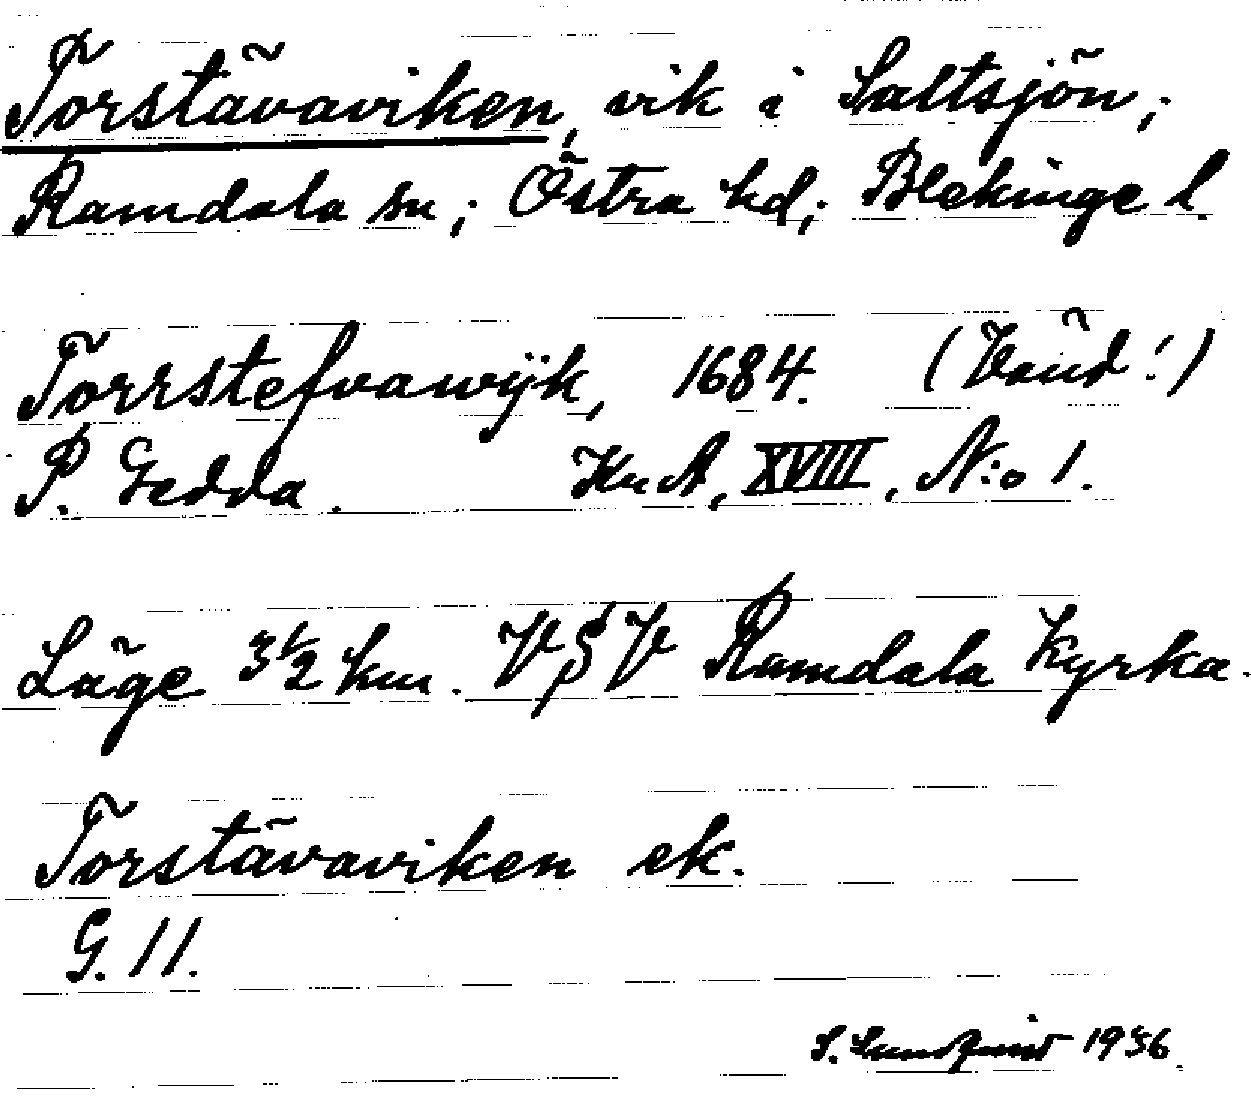 Torstävaviken, vik i Saltsjön;
Ramdala sn; Östra hd; Blekinge l.
Torrstefvawijk, 1684. (Vänd!)
P. Gedda. KrA, XVIII, N:o 1.
Läge 3½ km. VSV Ramdala kyrka.
Torstävaviken ek.
G. 11.
S. Sundquist 1936.